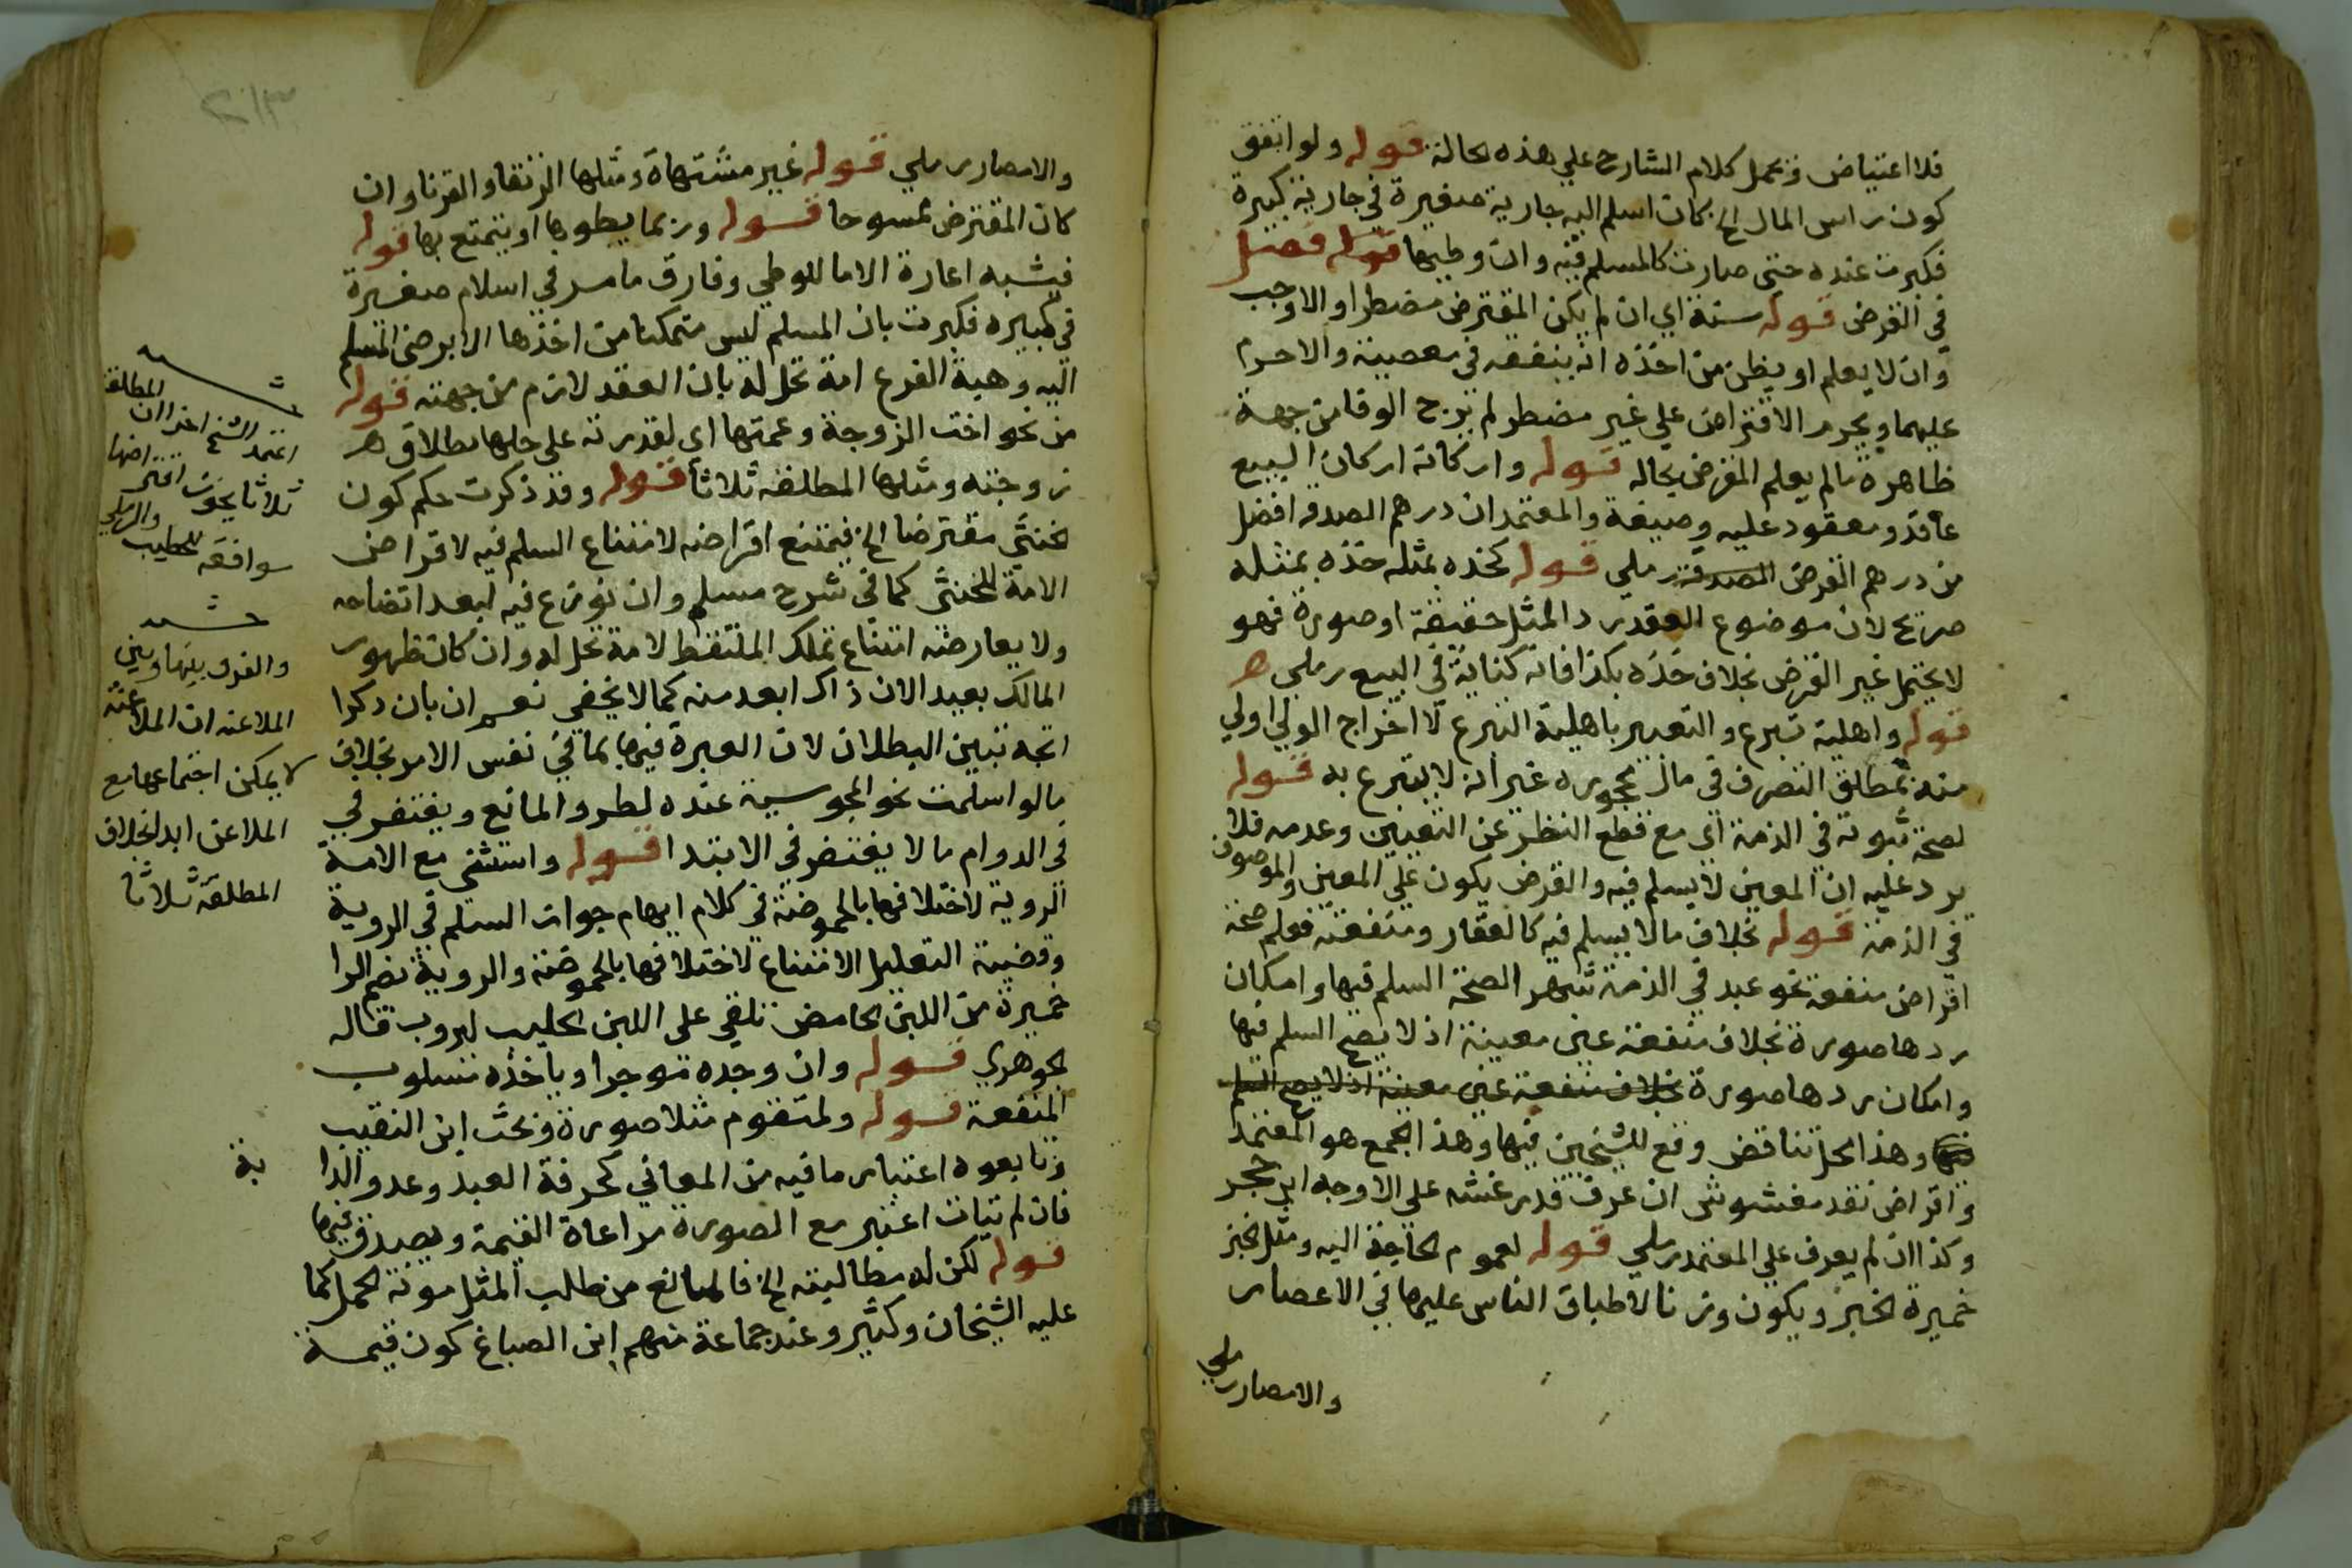 فلا اعتياض ويحمل كلام الشارح علي هذه الحالة قوله ولو اتفق
كون راس المال الخ كان اسلم اليه جارية صغيرة في جارية كبيرة
فكبرت عنده حتى صارت كالمسلم فيه وان وطيها قوله فصل
في القرض قوله سنة اي ان لم يكن المقترض مضطرا والا وجب
وان لا يعلم او يظن من اخذه انه ينفقه في معصية والا حرم
عليهما ويحرم الاقتراض علي غير مضطر لم يرج الوفا من جهة
ظاهرة ما لم يعلم المقرض بحاله قوله واركانه اركان البيع
عاقد ومعقود عليه وصيغة والمعتمد ان درهم الصدقه افضل
من درهم القرض رملي قوله كخذه بمثله خذه بمثله
صريح لان موضوع العقد رد المثل حقيقة او صورة فهو
لا يحتمل غير القرض بخلاف خذه بكذا فانه كناية في البيع رملي هـ
قوله واهلية تبرع والتعبير باهلية التبرع لاخراج الولي اولي
منه بمطلق التصرف في مال محجوره غير انه لا يتبرع به قوله
لصحة ثبوته في الذمة اي مع قطع النظر عن التعيين وعدمه فلا
يرد عليه ان المعين لا يسلم فيه والقرض يكون علي المعين والموصوف
في الذمة قوله بخلاف ما لا يسلم فيه كالعقار ومنفعته فعلم صحة
اقراض منفعة نحو عبد في الذمة شهرا لصحة السلم فيها وامكان
ردها صورة بخلاف منفعة عين معينة اذ لا يصح السلم فيها
وامكان ردها صورة بخلاف منفعة عين معينة اذ لا يصح السلم
فيها وهذا محل تناقض وقع للشيخين فيها وهذا الجمع هو المعتمد
واقراض نقد مغشوش ان عرف قدر غشه علي الاوجه ابن حجر
وكذا ان لم يعرف علي المعتمد رملي قوله لعموم الحاجة اليه ومثل الخبز
خميرة الخبز ويكون وزنا لاطباق الناس عليها في الاعصار
والامصار رملي
والامصار رملي قوله غير مشتهاة ومثلها الرتقا والقرنا وان
كان المقترض ممسوحا قوله وربما يطوها او يتمتع بها قوله
فيشبه اعارة الاما للوطي وفارق ما مر في اسلام صغيرة
في كبيره فكبرت بان المسلم ليس متمكنا من اخذها الا برضي المسلم
اليه وهبة الفرع امة تحل له بان العقد لازم من جهته قوله
من نحو اخت الزوجة وعمتها اي لقدرته علي حلها بطلاق هـ
زوجته ومثلها المطلقه ثلاثا قوله وقد ذكرت حكم كون
خنثي مقترضا الخ فيمتنع اقراضه لامتناع السلم فيه لا قراض
الامة للخنثي كما في شرح مسلم وان نوزع فيه لبعد اتضاحه
ولا يعارضه امتناع تملك الملتقط لامة تحل له وان كان ظهور
المالك بعيد الان ذاك ابعد منه كما لا يخفي نعم ان بان ذكرا
اتجه تبين البطلان لان العبرة فيها بما في نفس الامر بخلاف
ما لو اسلمت نحو المجوسية عنده لطرو المانع ويغتفر في
في الدوام ما لا يغتفر في الابتدا قوله واستثني مع الامة
الروبة لاختلافها بالحموضة في كلام ايهام جواز السلم في الروبة
وقضية التعليل الامتناع لاختلافها بالحموضة والروبة بضم الرا
خميرة من اللبن الحامض تلقي على اللبن الحليب ليروب قاله
الجوهري قوله وان وجده موجرا وياخذه مسلوب
المنفعة قوله ولمتقوم مثلا صورة وبحث ابن النقيب
وتابعوه اعتبار ما فيه من المعاني كحرفة العبد وعدو الدا
بة
فان لم تيات اعتبر مع الصورة مراعاة القيمة ويصدق فيها
قوله لكن له مطالبته الخ فالمانع من طلب المثل مونة الحمل كما
عليه الشيخان وكثير وعند جماعة منهم ابن الصباغ كون قيمة
اعتمد الشيخ ان المطلقة
ثلاثا يجوز اقتراضها
والرملي
موافقه للخطيب
والفرق بينها وبين
الملاعنه ان الملاعنة
لا يمكن اجتماعها مع
الملاعن ابدا بخلاف
المطلقة ثلاثا